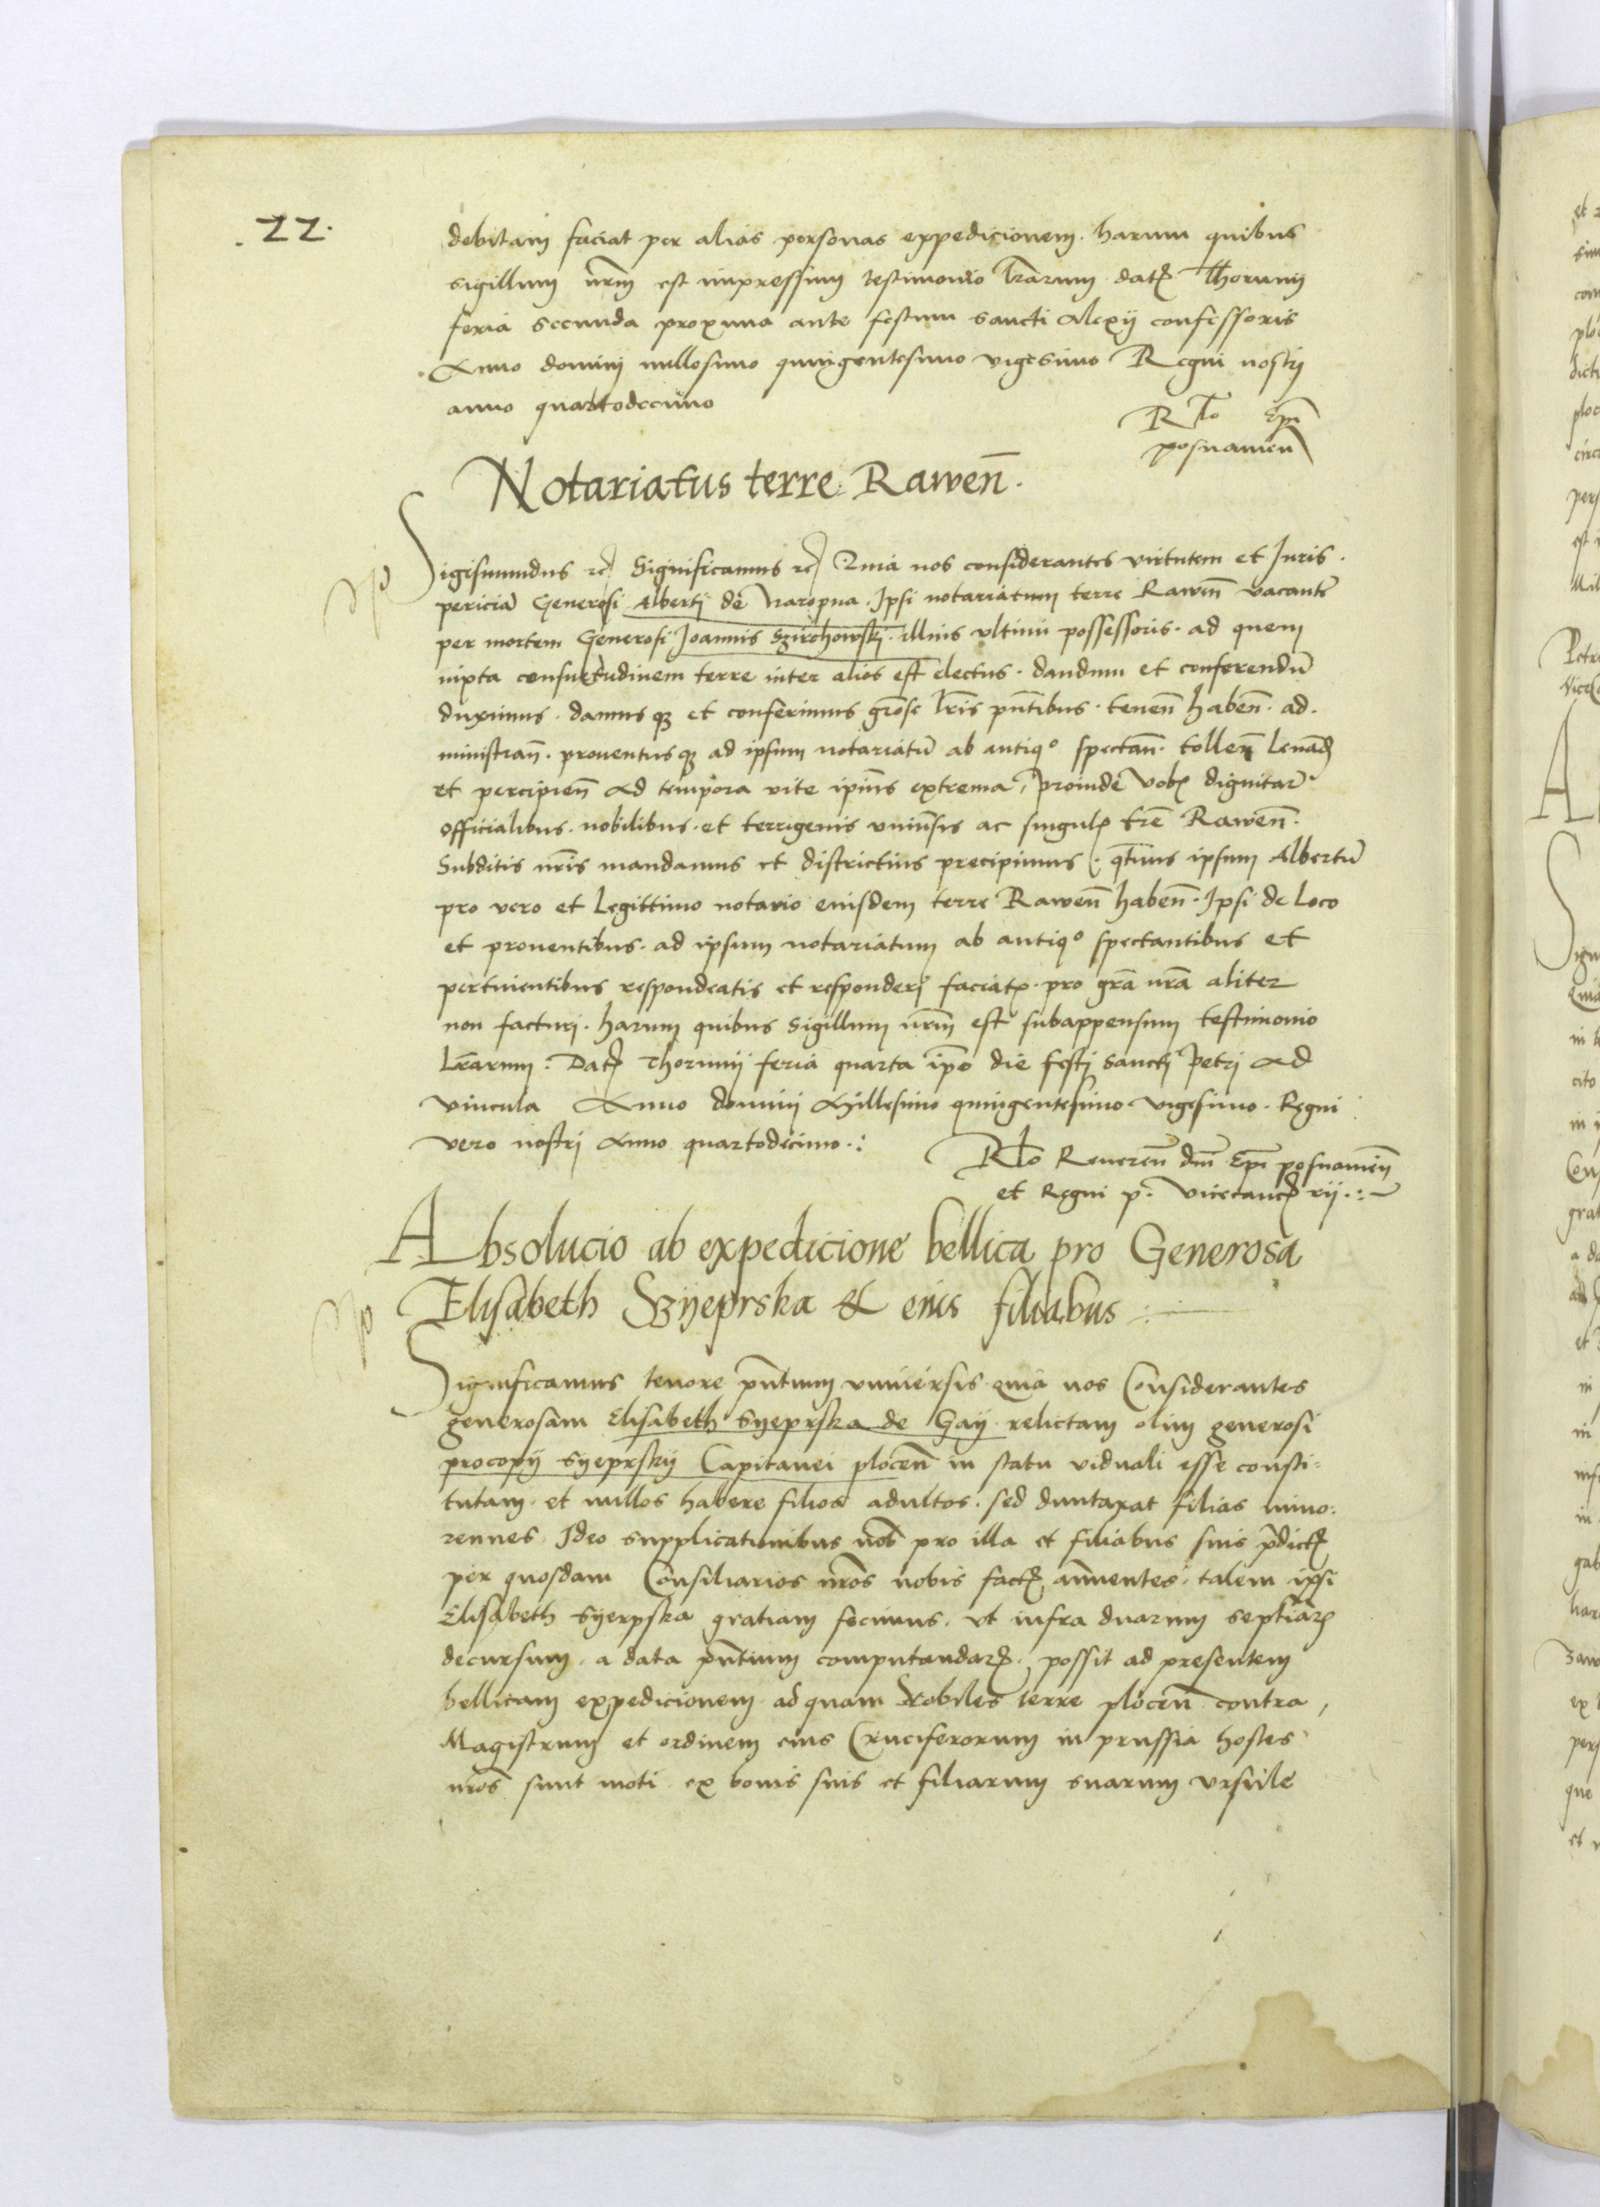 .22.
debitam faciat per alias personas expedicionem. harum quibus
sigillum nrm̄ est impressum testimonio lr̄arum. datꝭ Thorunij
feria secunda proxima ante festum sancti Alexij confessoris
Anno domini millesimo quingentesimo vigesimo Regni nostrj
anno quartodecimo
Rło Epī
posnanien̄
Notariatus terre Rawen̄.
Sigismundus ꝛcꝭ Significamus ꝛcꝭ Quia nos considerantes virtutem et Iuris.
pericia͞ Generosi Albertj de Naropna. Ipsi notariatum terre Rawen̄ vacante͞
per mortem Generosi Joannis Szirchowskj. illius vltimi possessoris. ad quem
iuxta consuetudinem terre inter alios est electus. dandum et conferendu͞
duximus. damusqꝫ et conferimus grōse lr̄is pn̄tibus. tenen̄ haben̄. ad.
ministran̄. prouentusqꝫ ad ipsum notariatu͞ ab antiqº spectan̄. tollen̄ leuan̄dꝭ
et percipien̄ ad tempora vite ipīus extrema, proinde vobꝭ dignitar͞
officialibus. nobilibus. et terrigenis vniu͞sis ac singulꝭ tr̄e Rawen̄.
Subditis nr̄is mandamus et districtius precipimus. qtīnus ipsum Albertu͞
pro vero et legittimo notario eiusdem terre Rawen̄ haben̄. Ipsi de loco
et prouentibus. ad ipsum notariatum ab antiqº spectantibus et
pertinentibus respondeatis et responderj faciatꝭ. pro gr̄a nr̄a aliter
non facturj. harum quibus sigillum nrm̄ est subappensum testimonio
lr̄arum. Datꝭ Thorunij feria quarta ip̄o die festj sanctj Petrj ad
vincula Anno dominj Millesimo quingentesimo vigesimo. Regni
vero nostrj Anno quartodecimo.:
Rło Reueren̄ dn̄i Epī posnanien̄
et Regni p. vicecancꝭrij.:~
Absolucio ab expedicione bellica pro Generosa
Elisabeth Szyeprska et eius filiabus :-
Significamus tenore pn̄tium vniuersis. quia nos Considerantes
generosam Elisabeth Syeprska de Gay. relictam olim generosi
procopij Syeprskij Capitanei plocen̄ in statu viduali esse consti=
tutam. et nullos habere filios adultos. sed duntaxat filias mino:
rennes. Ideo supplicationibus nob͞ pro illa et filiabus suis p̄dictꝭ
per quosdam Consiliarios nr̄os nobis factꝭ an̄uentes. talem ipsi
Elisabeth Syerpska gratiam fecimus. vt infra duarum septīarꝭ
decursum. a data pn̄tium computandarꝭ. possit ad presentem
bellicam expedicionem. ad quam Nobiles terre plocen̄ contra,
Magistrum et ordinem eius Cruciferorum in prussia hostes
nr̄os sunt moti. ex bonis suis et filiarum suarum vrsule